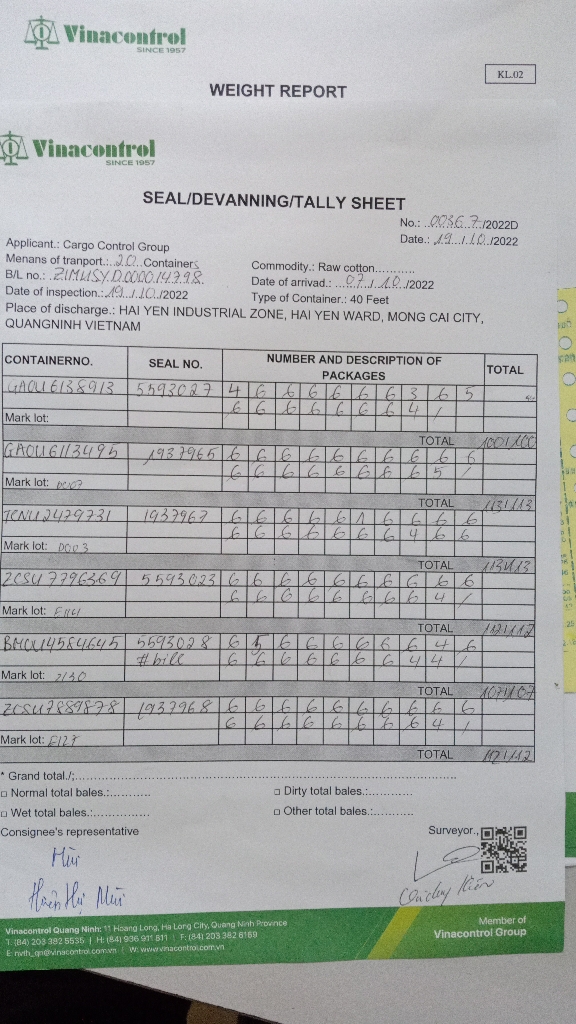 Vinacontrol
SINCE 1957
KL.02
WEIGHT REPORT
Vinacontrol
SINCE 1957
SEAL/DEVANNING/TALLY SHEET
No.: 00367/2022D
Date.: 19../10./2022
Applicant.: Cargo Control Group
Menans of tranport.: 20 Containers
Commodity.: Raw cotton............
B/L no.: ZIMUSYD000014798
Date of arrivad.: ...07./.10./2022
Date of inspection.: 19./10./2022
Type of Container.: 40 Feet
Place of discharge.: HAI YEN INDUSTRIAL ZONE, HAI YEN WARD, MONG CAI CITY,
QUANGNINH VIETNAM
CONTAINERNO. SEAL NO. NUMBER AND DESCRIPTION OF PACKAGES TOTAL
GAOU6138913 5593027 4 6 6 6 6 6 6 3 6 5
6 6 6 6 6 6 6 4 /
Mark lot:
TOTAL 100/100
GAOU6113495 1937965 6 6 6 6 6 6 6 6 6 6
6 6 6 6 6 6 6 6 5 /
Mark lot:
TOTAL 113/113
TCNU2479731 1937967 6 6 6 6 6 1 6 6 6 6
6 6 6 6 6 6 6 4 6 6
Mark lot: D003
TOTAL 113/113
ZCSU7796369 5593023 6 6 6 6 6 6 6 6 6 6
6 6 6 6 6 6 6 6 4 /
Mark lot:
TOTAL 112/112
5593028 6 5 6 6 6 6 6 6 4 6
#bill 6 6 6 6 6 6 6 4 4 /
Mark lot: 2130
TOTAL 107/107
ZCSU7889878 1937968 6 6 6 6 6 6 6 6 6 6
6 6 6 6 6 6 6 6 4 /
Mark lot: E127
TOTAL 112/112
* Grand total./:
□ Normal total bales.:........... □ Dirty total bales.:...........
□ Wet total bales.:........... □ Other total bales.:...........
Consignee's representative Surveyor.,
Mùi
Vinacontrol Quang Ninh: 11 Hoang Long, Ha Long City, Quang Ninh Province
T: (84) 203 382 5535 | H: (84) 936 911 511 | F: (84) 203 382 6169
E: nvth_qn@vinacontrol.com.vn | W: www.vinacontrol.com.vn
Member of
Vinacontrol Group